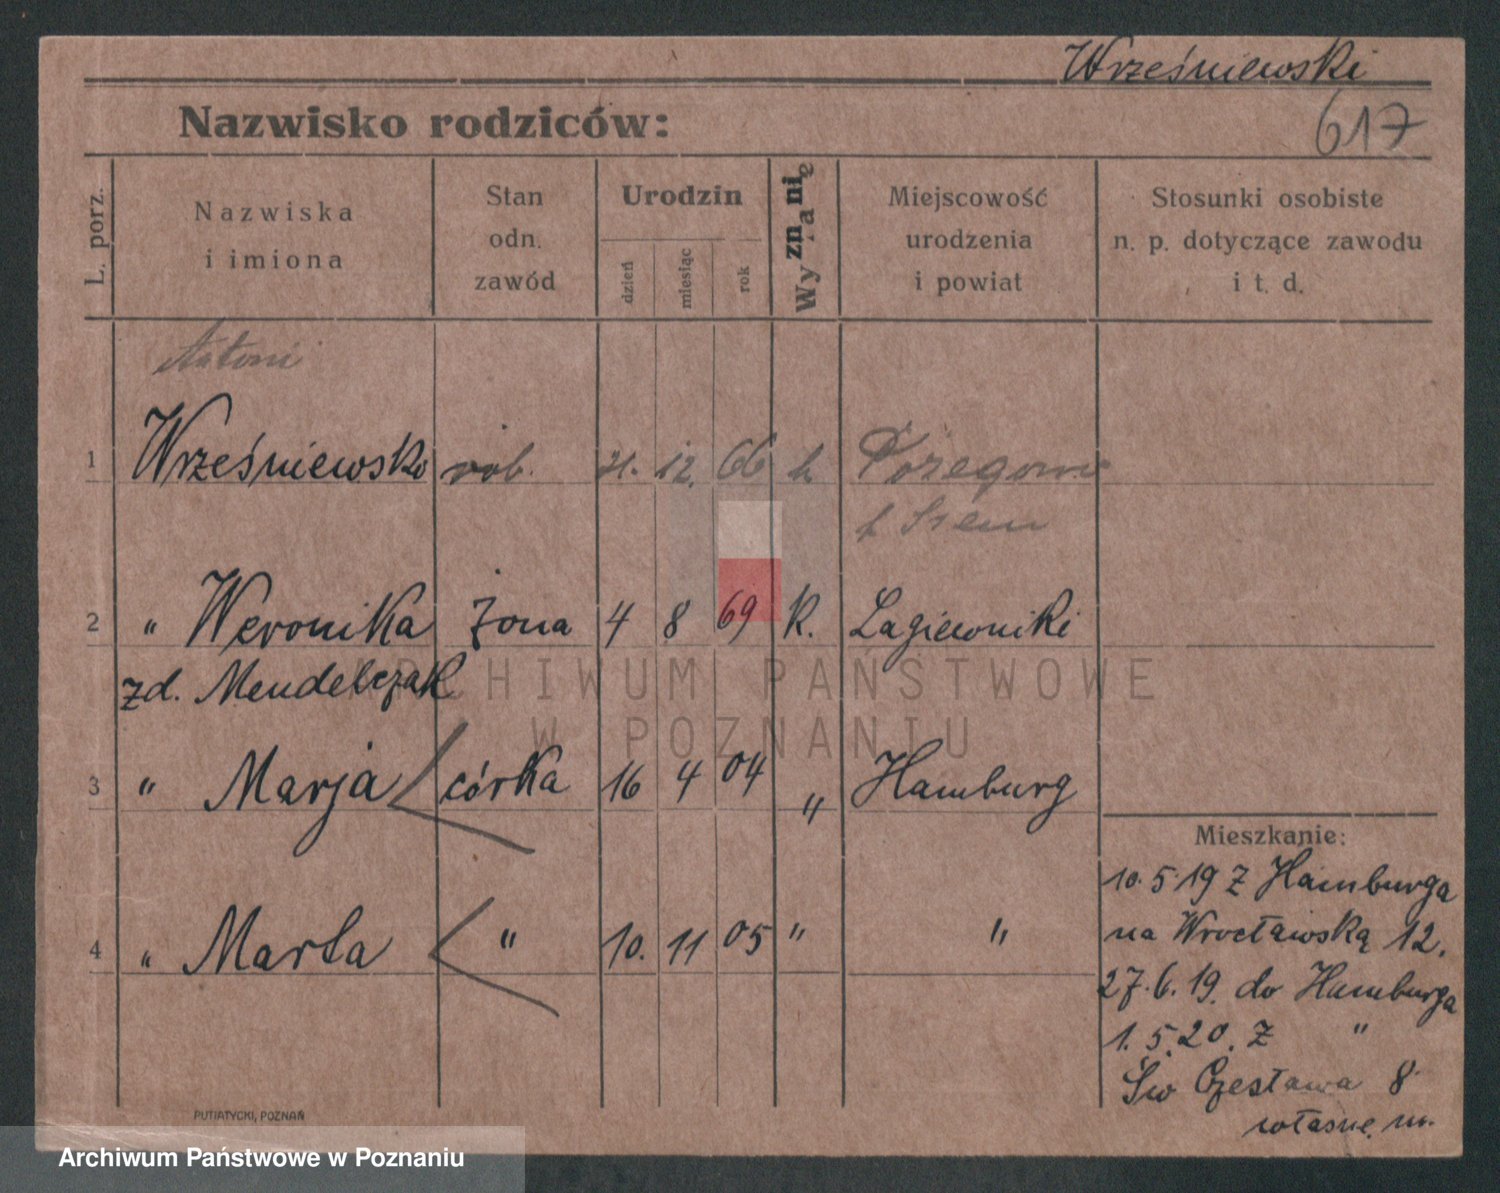 Wrześniewski
617
Nazwisko rodziców:
L. porz.
Nazwiska
i imiona
Stan
odn.
zawód
Urodzin
dzień
miesiąc
rok
Wyznanie
Miejscowość
urodzenia
i powiat
Stosunki osobiste
n. p. dotyczące zawodu
i t. d.
Antoni
1 Wrześniewski rob. 21. 12. 66 k
Szem
2 " Weronika żona 4 8 69 k. Łagiewniki
zd. Mendelczak
3 " Marja córka 16 4 04 " Hamburg
4 " Marta " 10. 11 05 " "
Mieszkanie:
10. 5 19 z Hamburga
na Wrocławską 12.
27. 6. 19. do Hamburga
1. 5. 20. z "
Św Czesława 8
własne m.
ARCHIWUM PAŃSTWOWE
W POZNANIU
PUTIATYCKI, POZNAŃ
Archiwum Państwowe w Poznaniu